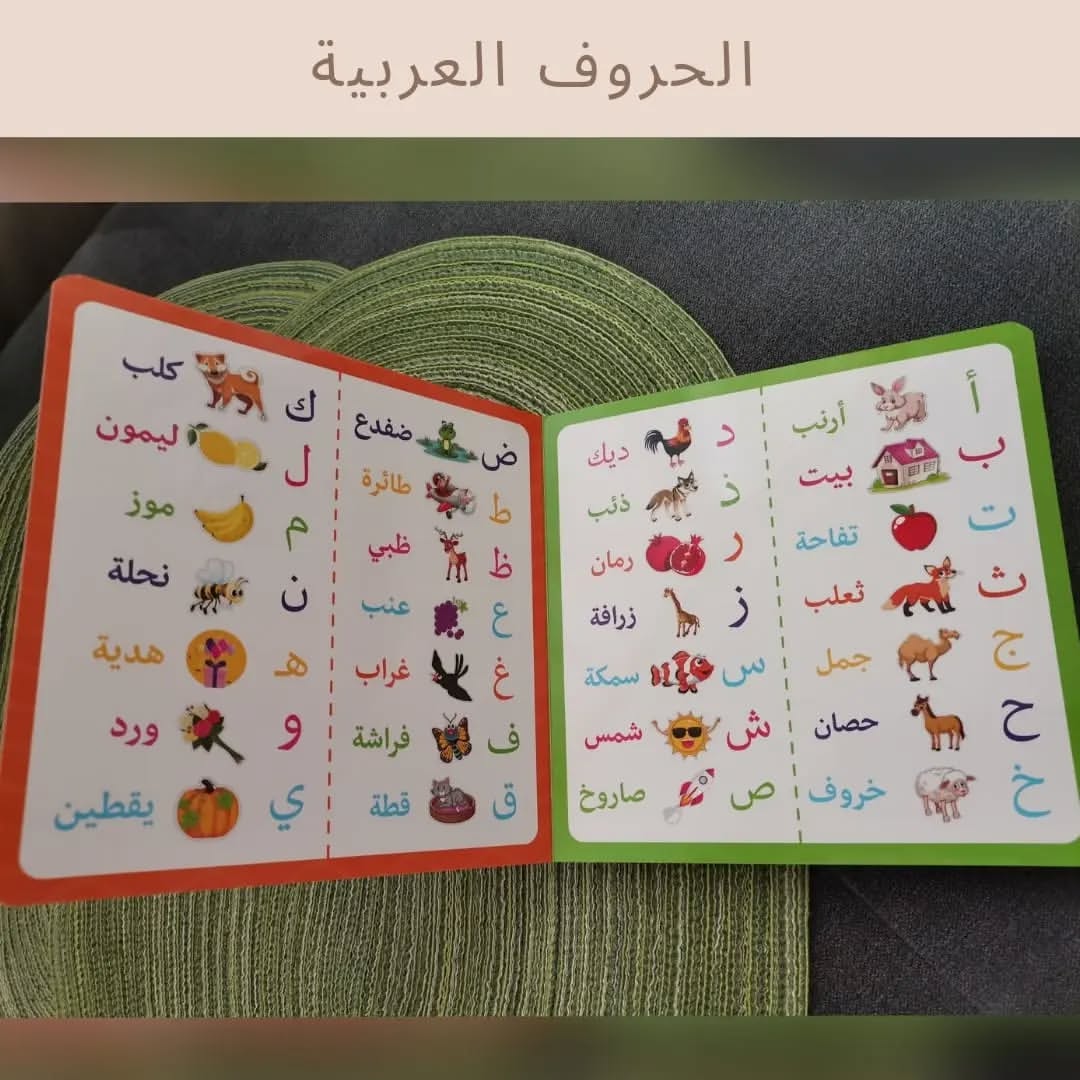 الحروف العربية
أ أرنب
ب بيت
ت تفاحة
ث ثعلب
ج جمل
ح حصان
خ خروف
د ديك
ذ ذئب
ر رمان
ز زرافة
س سمكة
ش شمس
ص صاروخ
ض ضفدع
ط طائرة
ظ ظبي
ع عنب
غ غراب
ف فراشة
ق قطة
ك كلب
ل ليمون
م موز
ن نحلة
هـ هدية
و ورد
ي يقطين